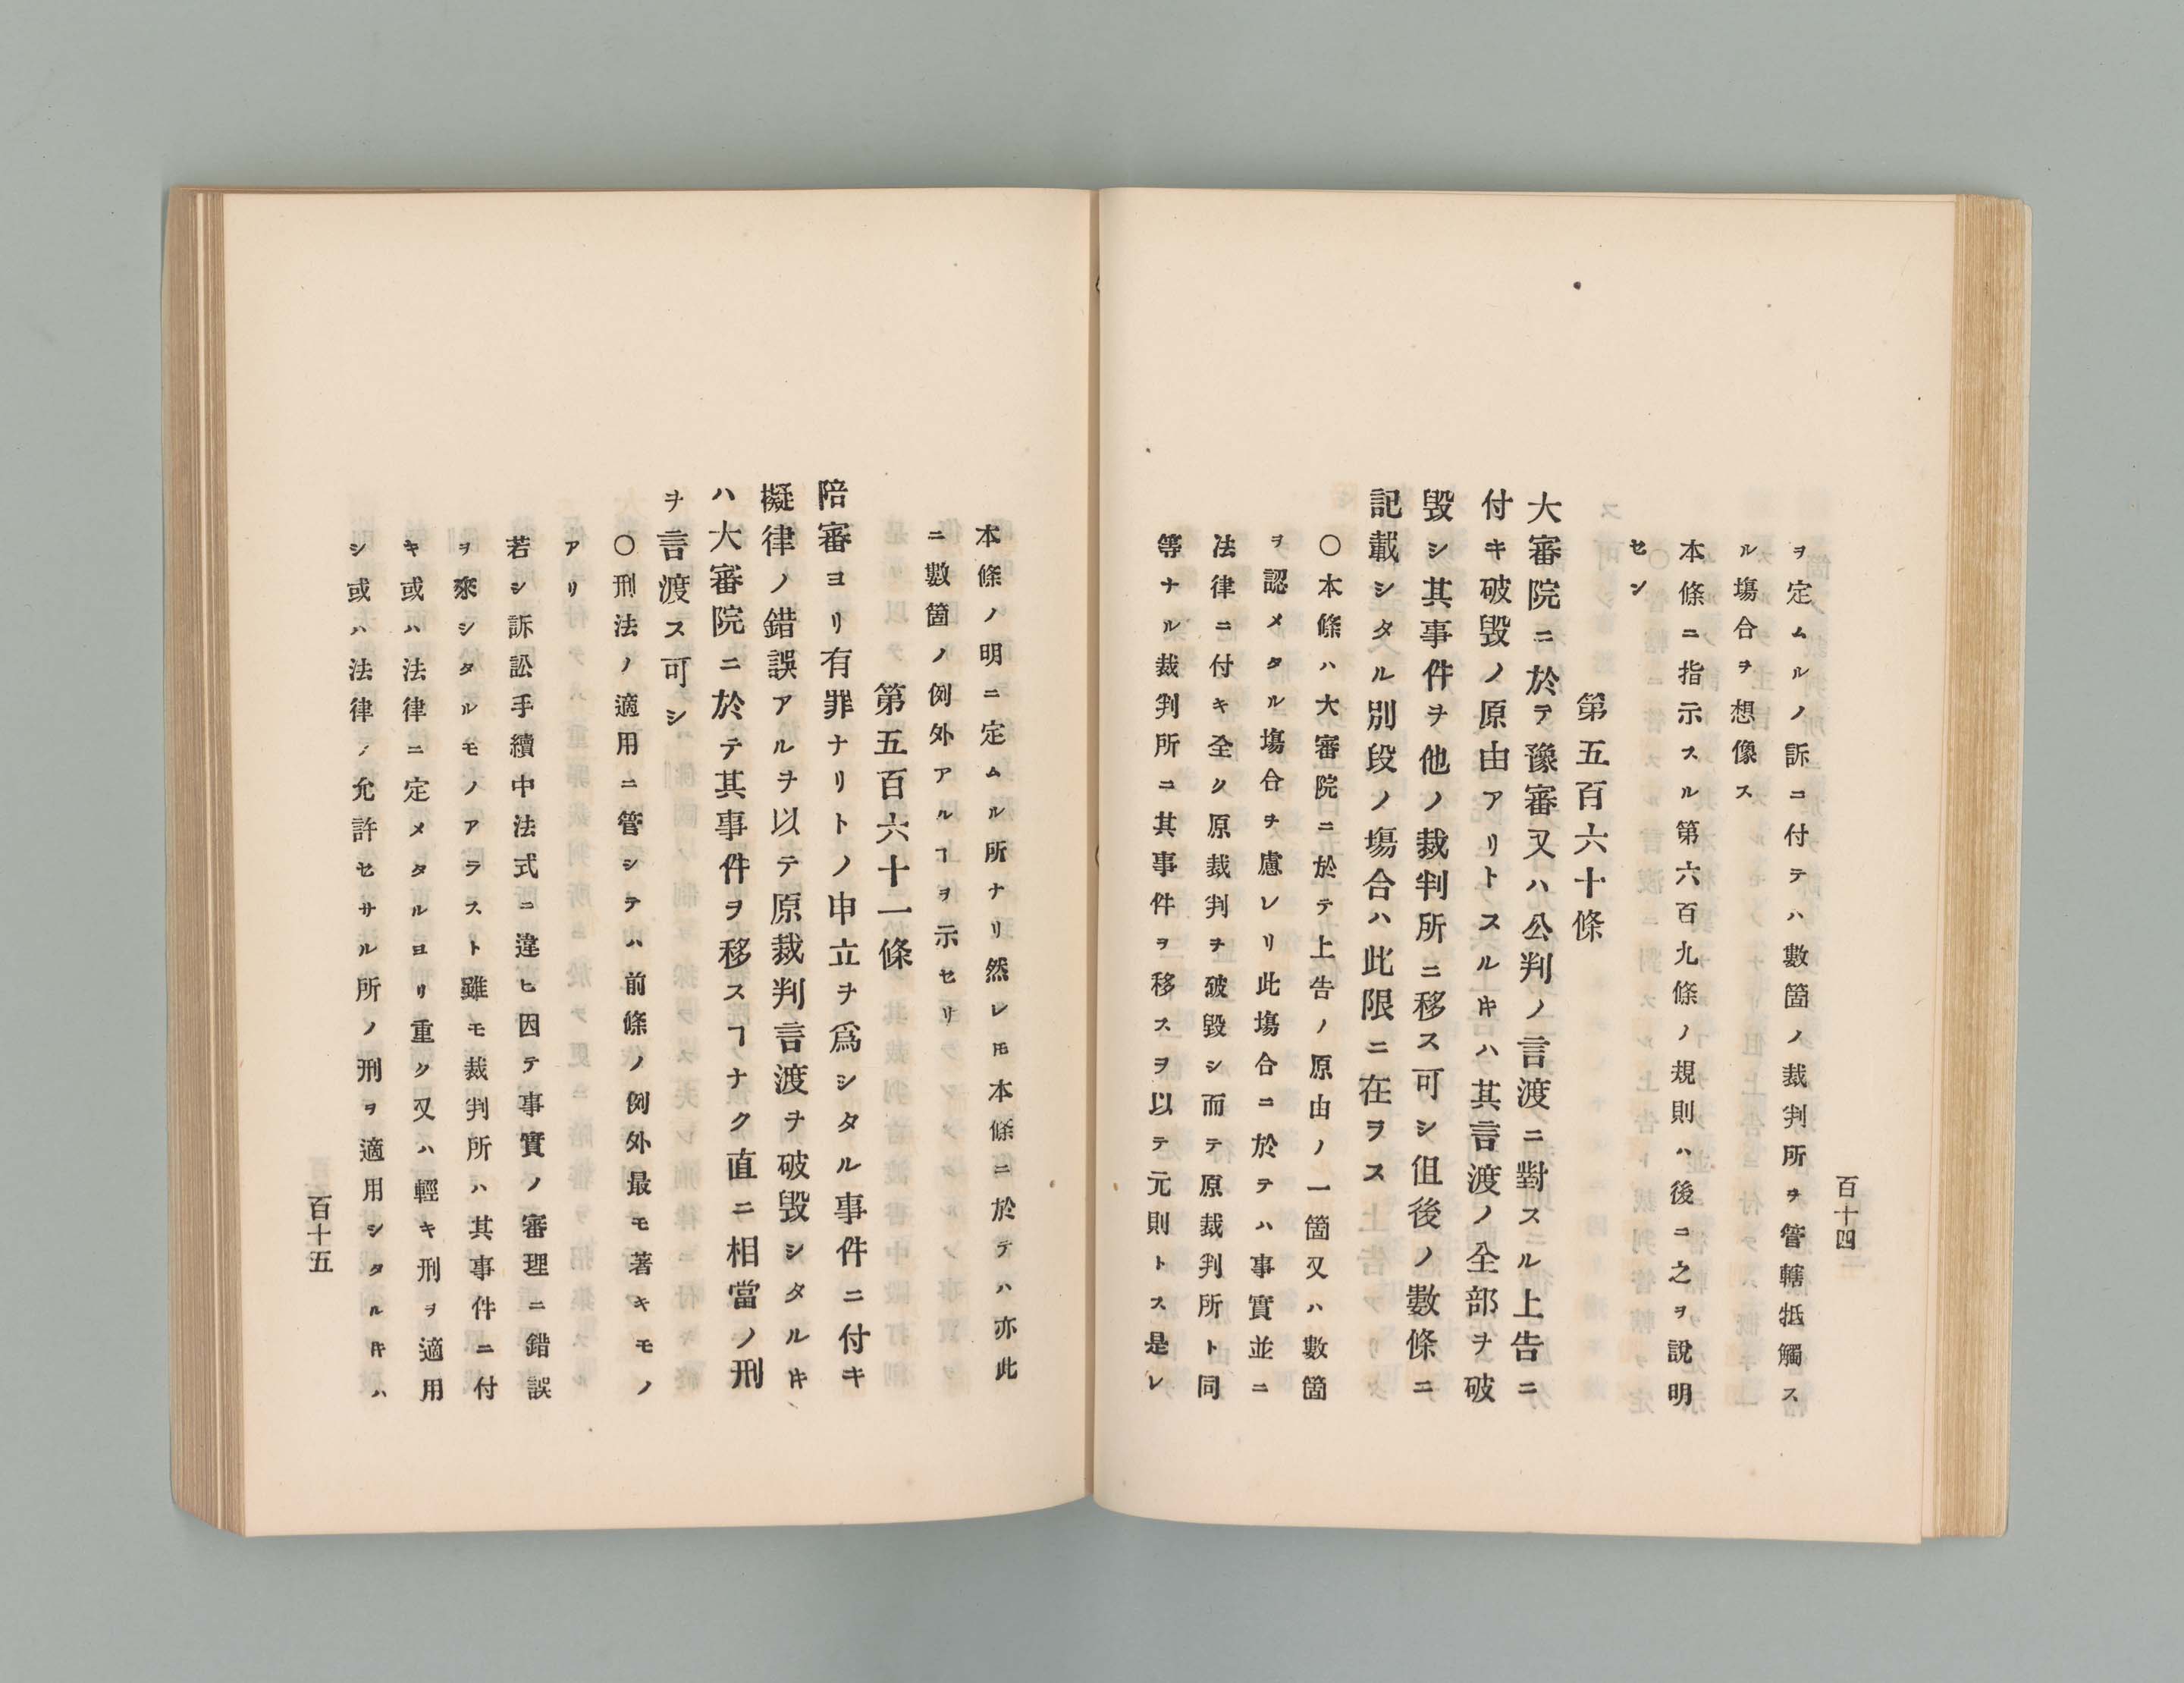 百十四
ヲ定ムルノ訴ニ付テハ數箇ノ裁判所ヲ管轄抵觸ス
ル塲合ヲ想像ス
本條ニ指示スル第六百九條ノ規則ハ後ニ之ヲ說明
セン
第五百六十條
大審院ニ於テ豫審又ハ公判ノ言渡ニ對スル上告ニ
付キ破毀ノ原由アリトスルキハ其言渡ノ全部ヲ破
毀シ其事件ヲ他ノ裁判所ニ移ス可シ伹後ノ數條ニ
記載シタル別段ノ塲合ハ此限ニ在ヲス
〇本條ハ大審院ニ於テ上告ノ原由ノ一箇又ハ數箇
ヲ認メタル塲合ヲ慮レリ此塲合ニ於テハ事實並ニ
法律ニ付キ全ク原裁判ヲ破毀シ而テ原裁判所ト同
等ナル裁判所ニ其事件ヲ移スヲ以テ元則トス是レ
本條ノ明ニ定ムル所ナリ然レ𪜈本條ニ於テハ亦此
ニ數箇ノ例外アルヿヲ示セリ
第五百六十一條
陪審ヨリ有罪ナリトノ申立ヲ爲シタル事件ニ付キ
擬律ノ錯誤アルヲ以テ原裁判言渡ヲ破毀シタルキ
ハ大審院ニ於テ其事件ヲ移スヿナク直ニ相當ノ刑
ヲ言渡ス可シ
〇刑法ノ適用ニ管シテハ前條ノ例外最モ著キモノ
アリ
若シ訴訟手續中法式ニ違ヒ因テ事實ノ審理ニ錯誤
ヲ來シタルモノアラスト雖モ裁判所ハ其事件ニ付
キ或ハ法律ニ定メタルヨリ重ク又ハ輕キ刑ヲ適用
シ或ハ法律ノ允許セサル所ノ刑ヲ適用シタルキハ
百十五